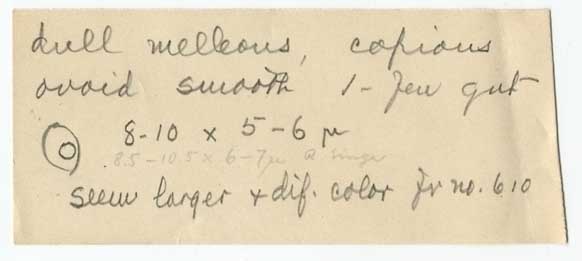 dull melleous, copious
ovoid smooth 1-few gut
8-10 x 5-6 µ
8.5-10.5 x 6-7µ R Singer
seem larger + dif. color fr no. 610